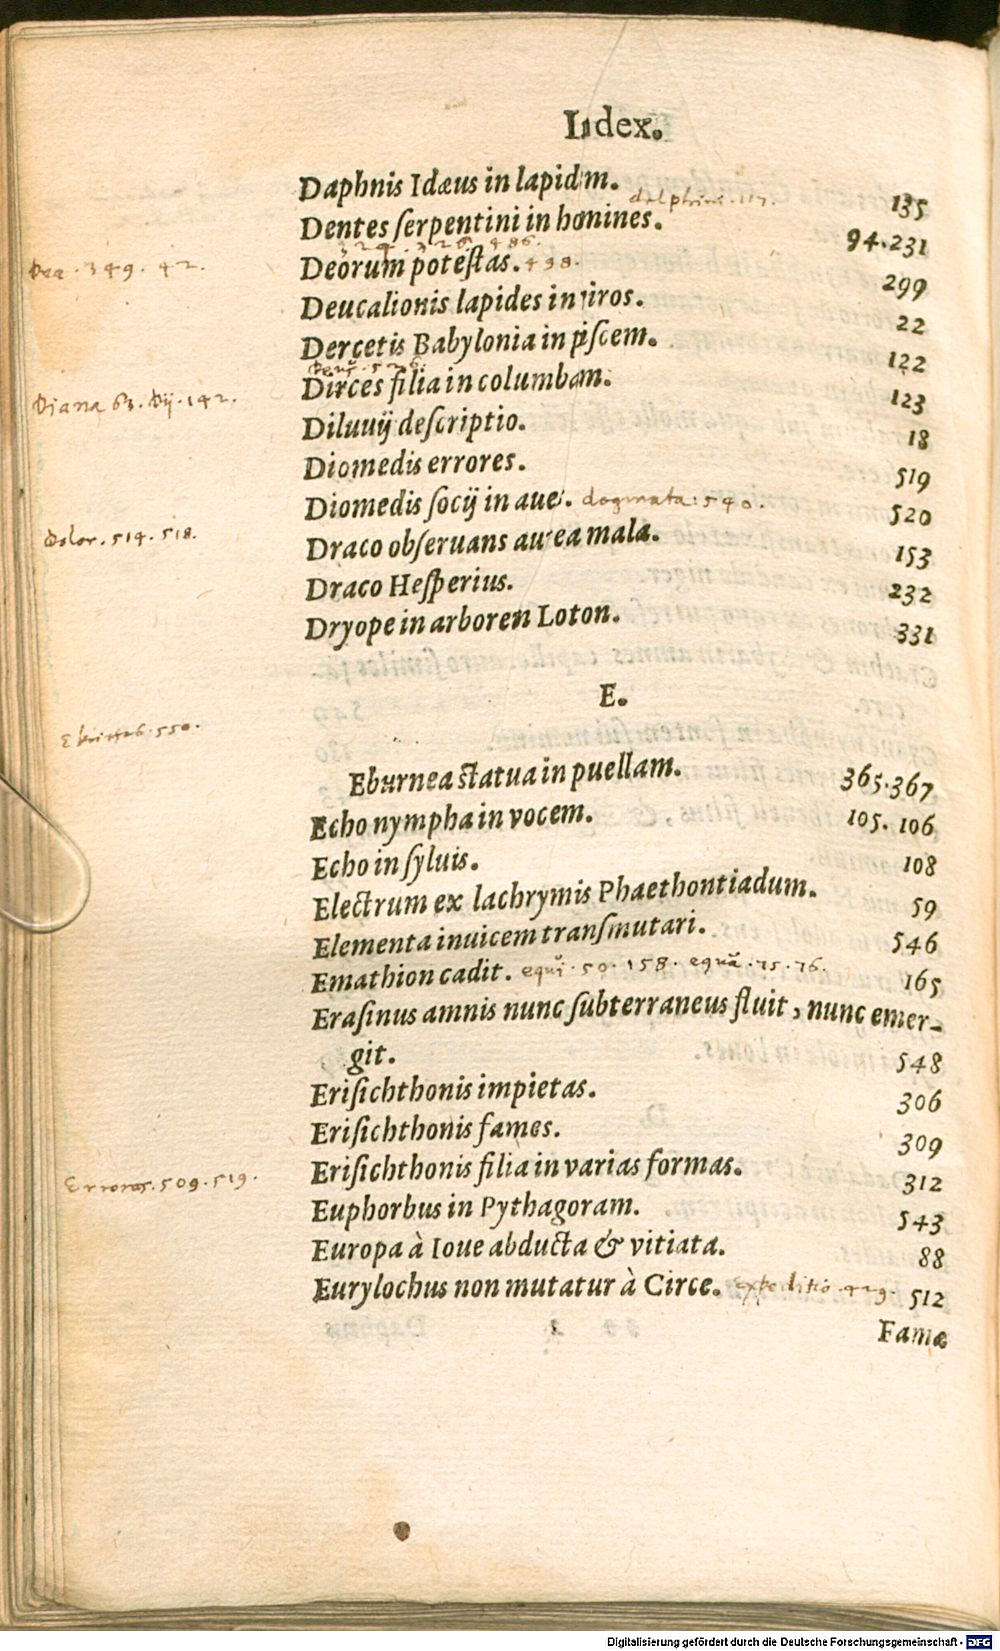 Index.
Daphnis Idæus in lapidem. 135
delphini. 117.
Dentes serpentini in homines. 94.231
Dea . 349. 42.
Deorum potestas. 498. 299
Deucalionis lapides in viros. 22
Dercetis Babylonia in piscem. 122
Dirces filia in columbam. 123
Diana 63. Dij. 142.
Diluuij descriptio. 18
Diomedis errores. 519
Diomedis socij in aues. dogmata. 540. 520
Dolor. 514. 518.
Draco obseruans aurea mala. 153
Draco Hesperius. 232
Dryope in arborem Loton. 331
E.
Ebrietas. 550.
Eburnea statua in puellam. 365.367
Echo nympha in vocem. 105. 106
Echo in syluis. 108
Electrum ex lachrymis Phaethontiadum. 59
Elementa inuicem transmutari. 546
Emathion cadit. equi. 50. 158. equa. 75. 76. 165
Erasinus amnis nunc subterraneus fluit, nunc emer-
git. 548
Erisichthonis impietas. 306
Erisichthonis fames. 309
Erisichthonis filia in varias formas. 312
Errores. 509. 519.
Euphorbus in Pythagoram. 543
Europa à Ioue abducta & vitiata. 88
Eurylochus non mutatur à Circe. expeditio. 429. 512
Famæ
Digitalisierung gefördert durch die Deutsche Forschungsgemeinschaft - DFG